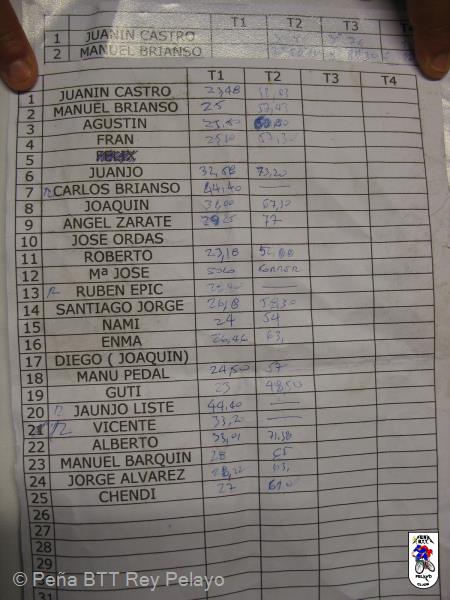 T1 T2 T3 T4
1 JUANIN CASTRO
2 MANUEL BRIANSO
T1 T2 T3 T4
1 JUANIN CASTRO 23,48
2 MANUEL BRIANSO 25 57,43
3 AGUSTIN
4 FRAN
5 FELIX
6 JUANJO 32,58 73,20
7 R CARLOS BRIANSO 44,40 —
8 JOAQUIN 67,30
9 ANGEL ZARATE 77
10 JOSE ORDAS
11 ROBERTO 23,18
12 Mª JOSE SOLO CORRER
13 R RUBEN EPIC —
14 SANTIAGO JORGE 26,18 58,30
15 NAMI 24 54
16 ENMA 26,46 63,
17 DIEGO ( JOAQUIN)
18 MANU PEDAL 24,50 57
19 GUTI 23 48,50
20 R JAUNJO LISTE 44,40 —
21 R VICENTE 33,20 —
22 ALBERTO 33,01 71,38
23 MANUEL BARQUIN 28 65
24 JORGE ALVAREZ 28,22 63,
25 CHENDI 27
26
27
28
29
30
31
PEÑA BTT
PELAYO
© Peña BTT Rey Pelayo